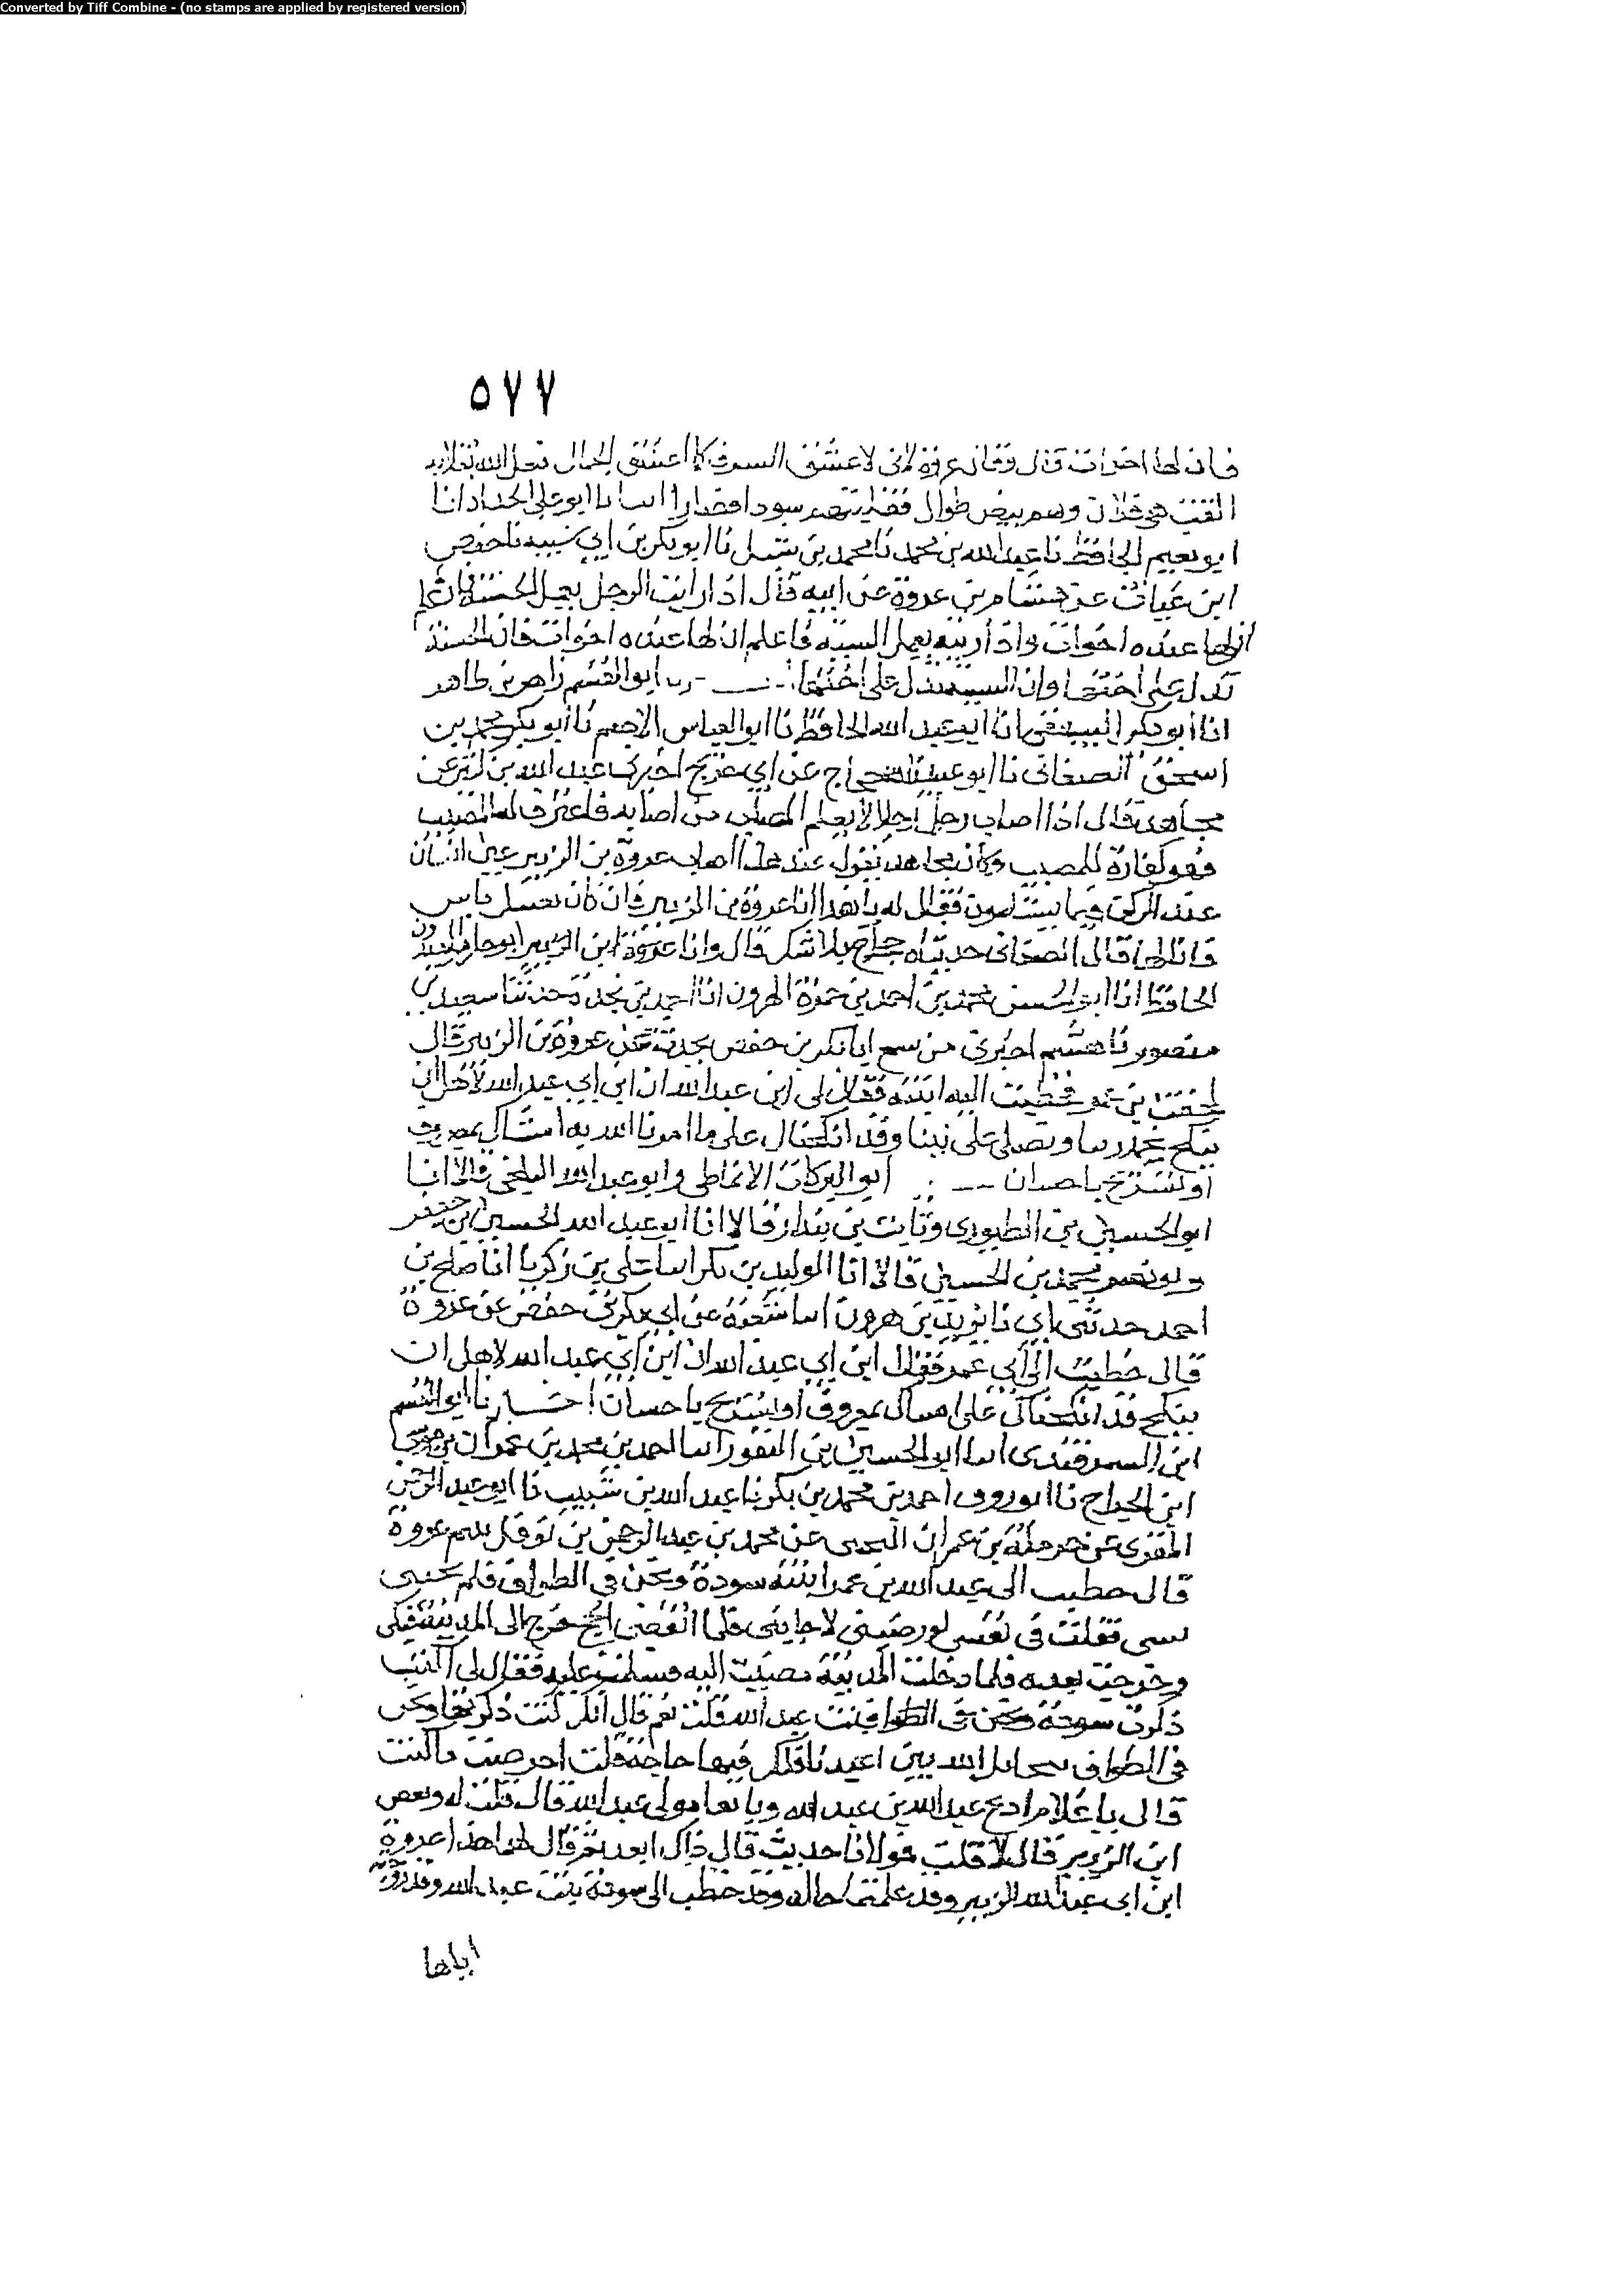 Converted by Tiff Combine - (no stamps are applied by registered version)
٥٧٧
فان لها اخوات قال وقال عروة لانى لاعشق الشرف كما اعشق الجمال فعل الله بفلانة
الفت بنى فلان وهم بيض طوال فقلبتهم سودا قصارا انبانا ابو على الحداد انا
ابو نعيم الحافظ نا عبد الله بن محمد نا محمد بن شبل نا ابو بكر بن ابي شيبه نا حفص
ابن غياث عن هشام بن عروة عن ابيه قال اذا رايت الرجل يعمل الحسنة فاعلم
ان لها عنده اخوات واذا رايته يعمل السيئه فاعلم ان لها عنده اخوات فان الحسنة
تدل على اختها وان السيئه تدل على اختها ابو القسم زاهر بن طاهر
انا ابو بكر البيهقى انا ابو عبد الله الحافظ نا ابو العباس الاصم نا ابو بكر محمد بن
اسحق الصغانى نا ابو عبيد نا حجاج عن ابي جريج اخبرنى عبد الله بن كثير عن
مجاهد قال اذا اصاب رجل رجلا لا يعلم المصاب من اصابه فاعترف له المصيب
فهو كفارة للمصيب وكان مجاهد يقول عند هذا اصاب عروة بن الزبير عين انسان
عند الركن فيما يستلمون فقال له يا هذا انا عروة بن الزبير فان كان بعينك باس
فانا لها قال الصغانى حدثناه حجاج بلا شك قال وانا عروة ابن الزبير ابو حازم العبدون
الحافظ انا ابو الحسن محمد بن احمد بن حمزة الهرون انا احمد بن نجدة حدثنا سعيد بن
منصور نا هشيم اخبرنى من سمع ابا بكر بن حفص يحدث عن عروة بن الزبير قال
لحقت بن عمر فخطبت اليه ابنته فقال لى ابن عبد الله ان ابن ابي عبد الله لاهل ان
ينكح نحمد ربنا ونصلى على نبينا وقد انكحناك على ما امرنا الله به امساك بمعروف
او تسريح باحسان ابو البركات الانماطى وابو عبد الله البلخى قالا انبا
ابو الحسين بن الطيورى وثابت بن بندار قالا انا ابو عبد الله الحسين ابن جعفر
وابو نصر محمد بن الحسين قالا انا الوليد بن بكر انبا على بن زكريا انا صالح بن
احمد حدثنى ابي نا يزيد بن هرون انبا شعبة عن ابي بكر بن حفص عن عروة
قال خطبت الى ابن عمر فقال ابن ابي عبد الله ان ابن ابي عبد الله لاهل ان
ينكح قد انكحناك على امساك بمعروف او تسريح باحسان اخبرنا ابو القسم
ابن السمرقندى انبا ابو الحسين بن النقور انبا احمد بن محمد بن عمران بن موسى
ابن الجراح نا ابو روق احمد بن محمد بن بكر نا عبد الله بن شبيب نا ابو عبد الرحمن
المقرى عن حرملة بن عمران التجيبى عن محمد بن عبد الرحمن بن نوفل سمع عروة
قال خطبت الى عبد الله بن عمر ابنته سودة ونحن فى الطواف فلم يجبنى
بشى فقلت فى نفسى لو رضينى لاجابنى فلما انقضى الحج خرج الى المدينة قبلى
وخرجت بعده فلما دخلت المدينة مضيت اليه فسلمت عليه فقال لى اكنت
ذكرت سودة ونحن فى الطواف بنت عبد الله قلت نعم قال انك كنت ذكرتها ونحن
فى الطواف يتخايل الله بين اعيننا افلك فيها حاجة قلت احرص ما كنت
قال يا غلام ادع عبد الله بن عبد الله ونافعا مولى عبد الله قال قلت له وبعض
ابن الزبير قال لا قلت فمولانا حديث قال ذاك ابعد ثم قال لهما هذا عروة
ابن ابى عبد الله الزبير وقد علمتما حاله وقد خطب الى سودة بنت عبد الله وقد زوجته
اياها